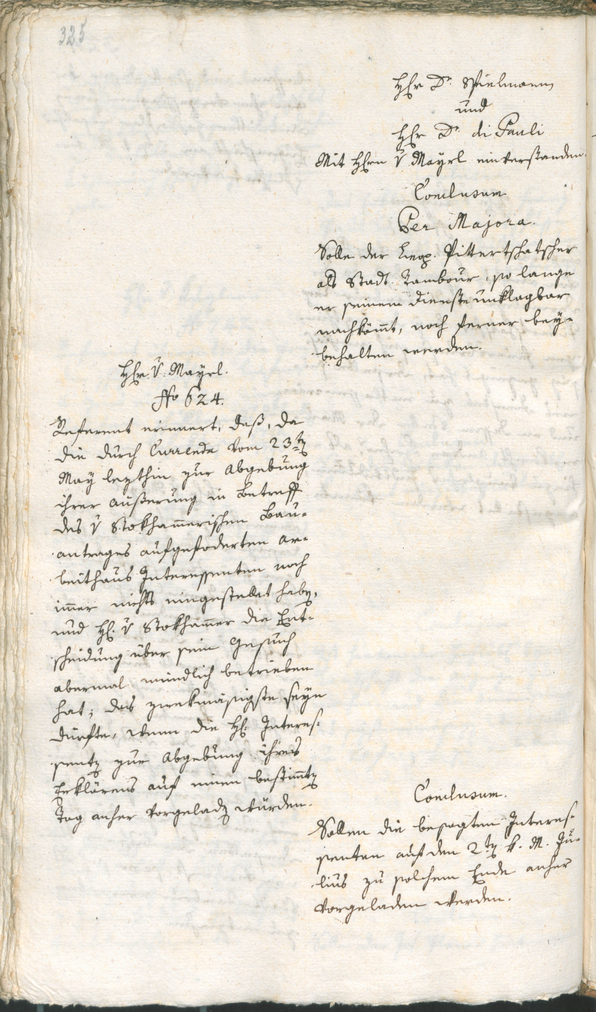 325
Hhr Dr. Spielmann
und
Hhr Dr. di Pauli
Mit Hhrn v Mayrl einverstanden.
Conclusum
Per Majora.
Solle der Leop. Pittertschatscher
als Stadt Tambour, so lange
er seinem Dienste unklagbar
nachkömt, noch ferner bey-
behalten werden.
Hhr. v. Mayrl.
No 624.
Referent erinnert, daß, da
die durch Currende vom 23ten
May letzthin zur Abgebung
ihrer Äußerung in Betreff
des v Stokhamerischen Bau-
antrages aufgeforderten Ar-
beithaus Interessenten noch
imer nichts eingestellt haben,
und H. v Stokhamer die Ent-
scheidung über sein Gesuch
abermal mündlich betrieben
hat; das zwekmäsigste seyn
dürfte, wenn die H. Interes-
senten zur Abgebung ihres
Erklärens auf einen bestimten
Tag anher vorgeladen würden.
Conclusum.
Sollen die besagten Interes-
senten auf den 2ten k. M. Ju-
lius zu solchem Ende anher
vorgeladen werden.